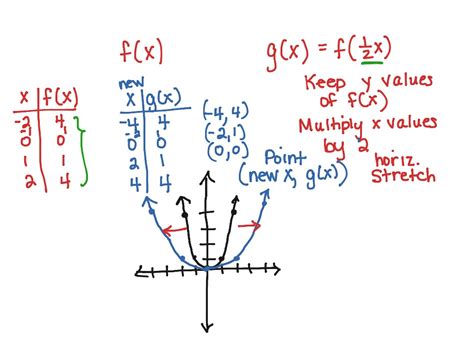 f(x)
g(x) = f(½x)
Keep y values
of f(x)
Multiply x values
by 2
horiz.
Stretch
x | f(x)
-2 | 4
-1 | 1
0 | 0
1 | 1
2 | 4
new
x | g(x)
-4 | 4
-2 | 1
0 | 0
2 | 1
4 | 4
(-4, 4)
(-2, 1)
(0, 0)
Point
(new x, g(x))